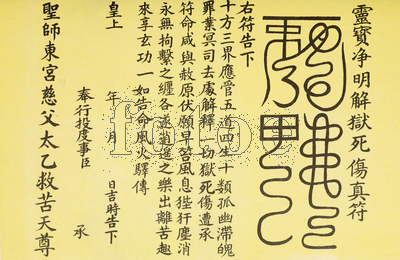 靈寶净明解獄死傷真符
右符告下
十方三界應管五道四生十類孤幽滯魄
罪業冥司去處解釋一切獄死傷遭承
符命咸與赦原伏願早笞風息狴犴塵消
永無拘繫之纏各遂逍遥之樂出離苦趣
來享玄功一如告命風火驛傳
皇上 年 月 日吉時告下
奉行投度事臣 承
聖師東宮慈父太乙救苦天尊